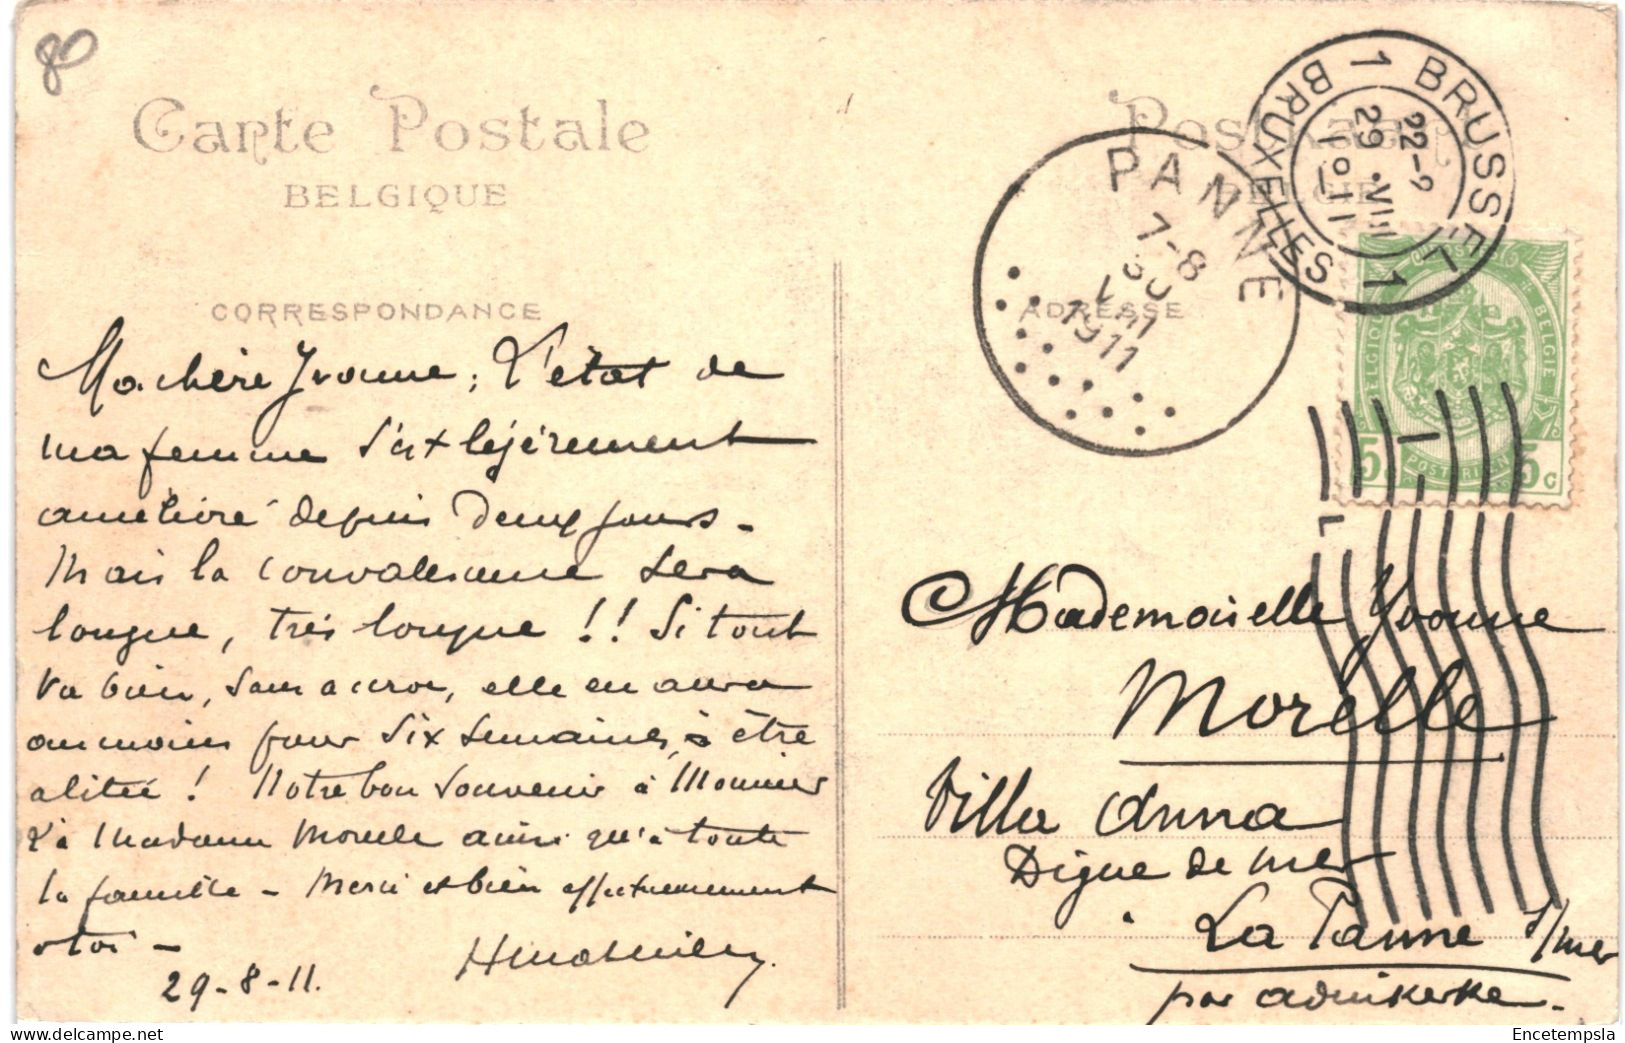 80
Carte Postale
BELGIQUE
CORRESPONDANCE
Ma chère Yvonne, L'état de
ma femme s'est légèrement
amélioré depuis deux jours -
Mais la convalescence sera
longue, très longue !! Si tout
va bien, sans accroc, elle en aura
au moins pour six semaines à être
alitée ! Notre bon souvenir à Monsieur
& à Madame Morelle ainsi qu'à toute
la famille - Merci et bien affectueusement
à toi -
29-8-11.
Postkaart
BELGIE
ADRESSE
PANNE
7-8
30
VIII
1911
1 BRUSSEL 1 BRUXELLES
22-
29 VIII
1911
BELGIQUE
BELGIE
POSTERIJEN
5c 5c
Mademoiselle Yvonne
Morelle
Villa Anna
Digue de mer
La Panne s/mer
par Adinkerke -
Encetempsla